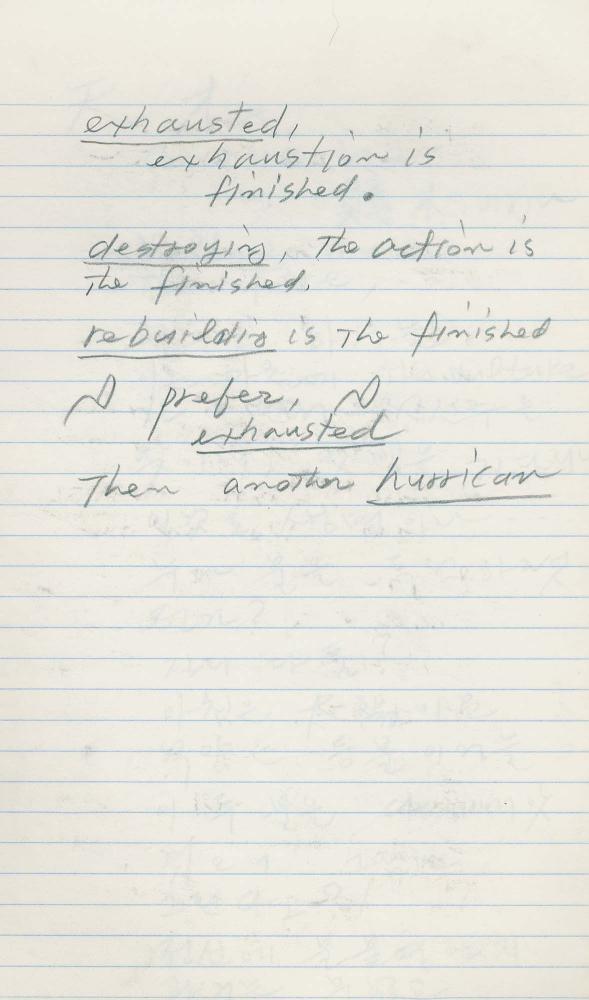 exhausted,
exhaustion is
finished.
destroying, The action is
The finished.
rebuildig is The finished
I prefer, I
exhausted
Then another hurrican